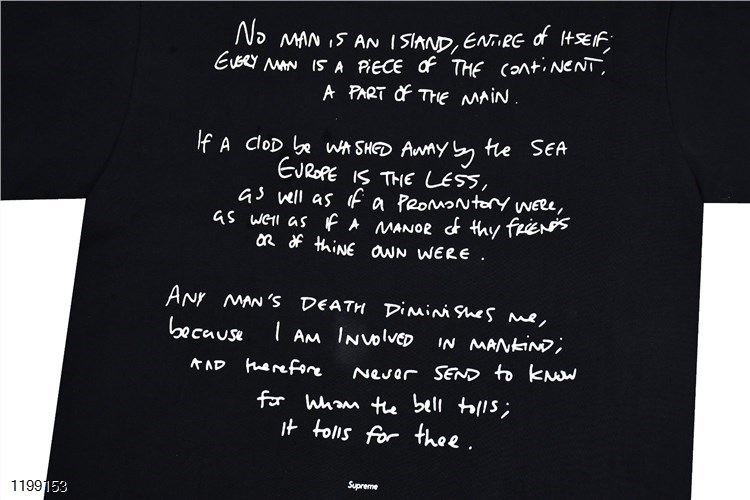 NO MAN IS AN ISLAND, ENTIRE of ITSELF;
EVERY MAN IS A PIECE OF THE CONTINENT,
A PART OF THE MAIN.
If A CLOD be WASHED AWAY by the SEA
EUROPE IS THE LESS,
as well as if a PROMONTORY WERE,
as well as if A MANOR of thy FRIENDS
OR of thine OWN WERE.
ANY MAN'S DEATH Diminishes me,
because I AM INVOLVED IN MANKIND;
AND therefore never SEND to KNOW
for whom the bell tolls;
It tolls for thee.
Supreme
1199153